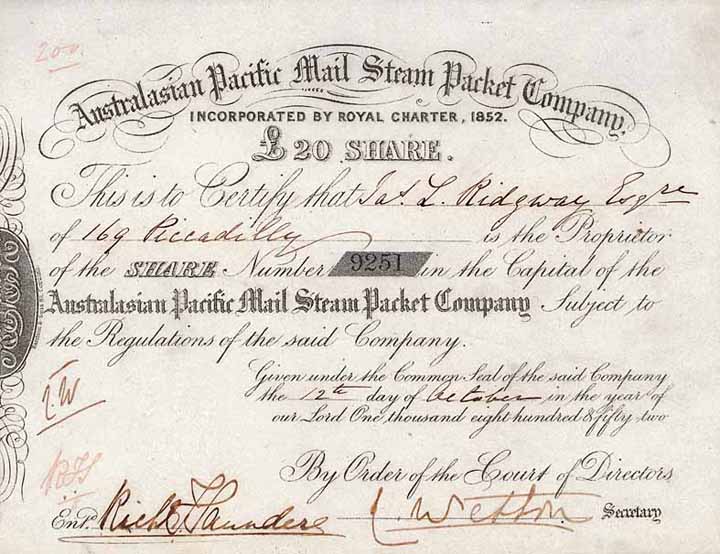 200.
Australasian Pacific Mail Steam Packet Company.
INCORPORATED BY ROYAL CHARTER, 1852.
£20 SHARE.
This is to Certify that Jas. L. Ridgway Esqre
of 169 Piccadilly is the Proprietor
of the SHARE Number 9251 in the Capital of the
Australasian Pacific Mail Steam Packet Company Subject to
the Regulations of the said Company.
Given under the Common Seal of the said Company
the 12th day of October in the year of
our Lord One thousand eight hundred & fifty-two
By Order of the Court of Directors
Entd. Richd Saunders Secretary